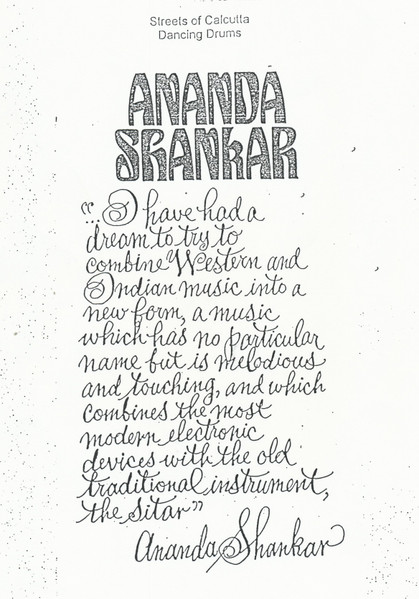 Streets of Calcutta
Dancing Drums
ANANDA
SHANKAR
"...I have had a
dream to try to
combine Western and
Indian music into a
new form, a music
which has no particular
name but is melodious
and touching, and which
combines the most
modern electronic
devices with the old
traditional instrument,
the Sitar"
Ananda Shankar